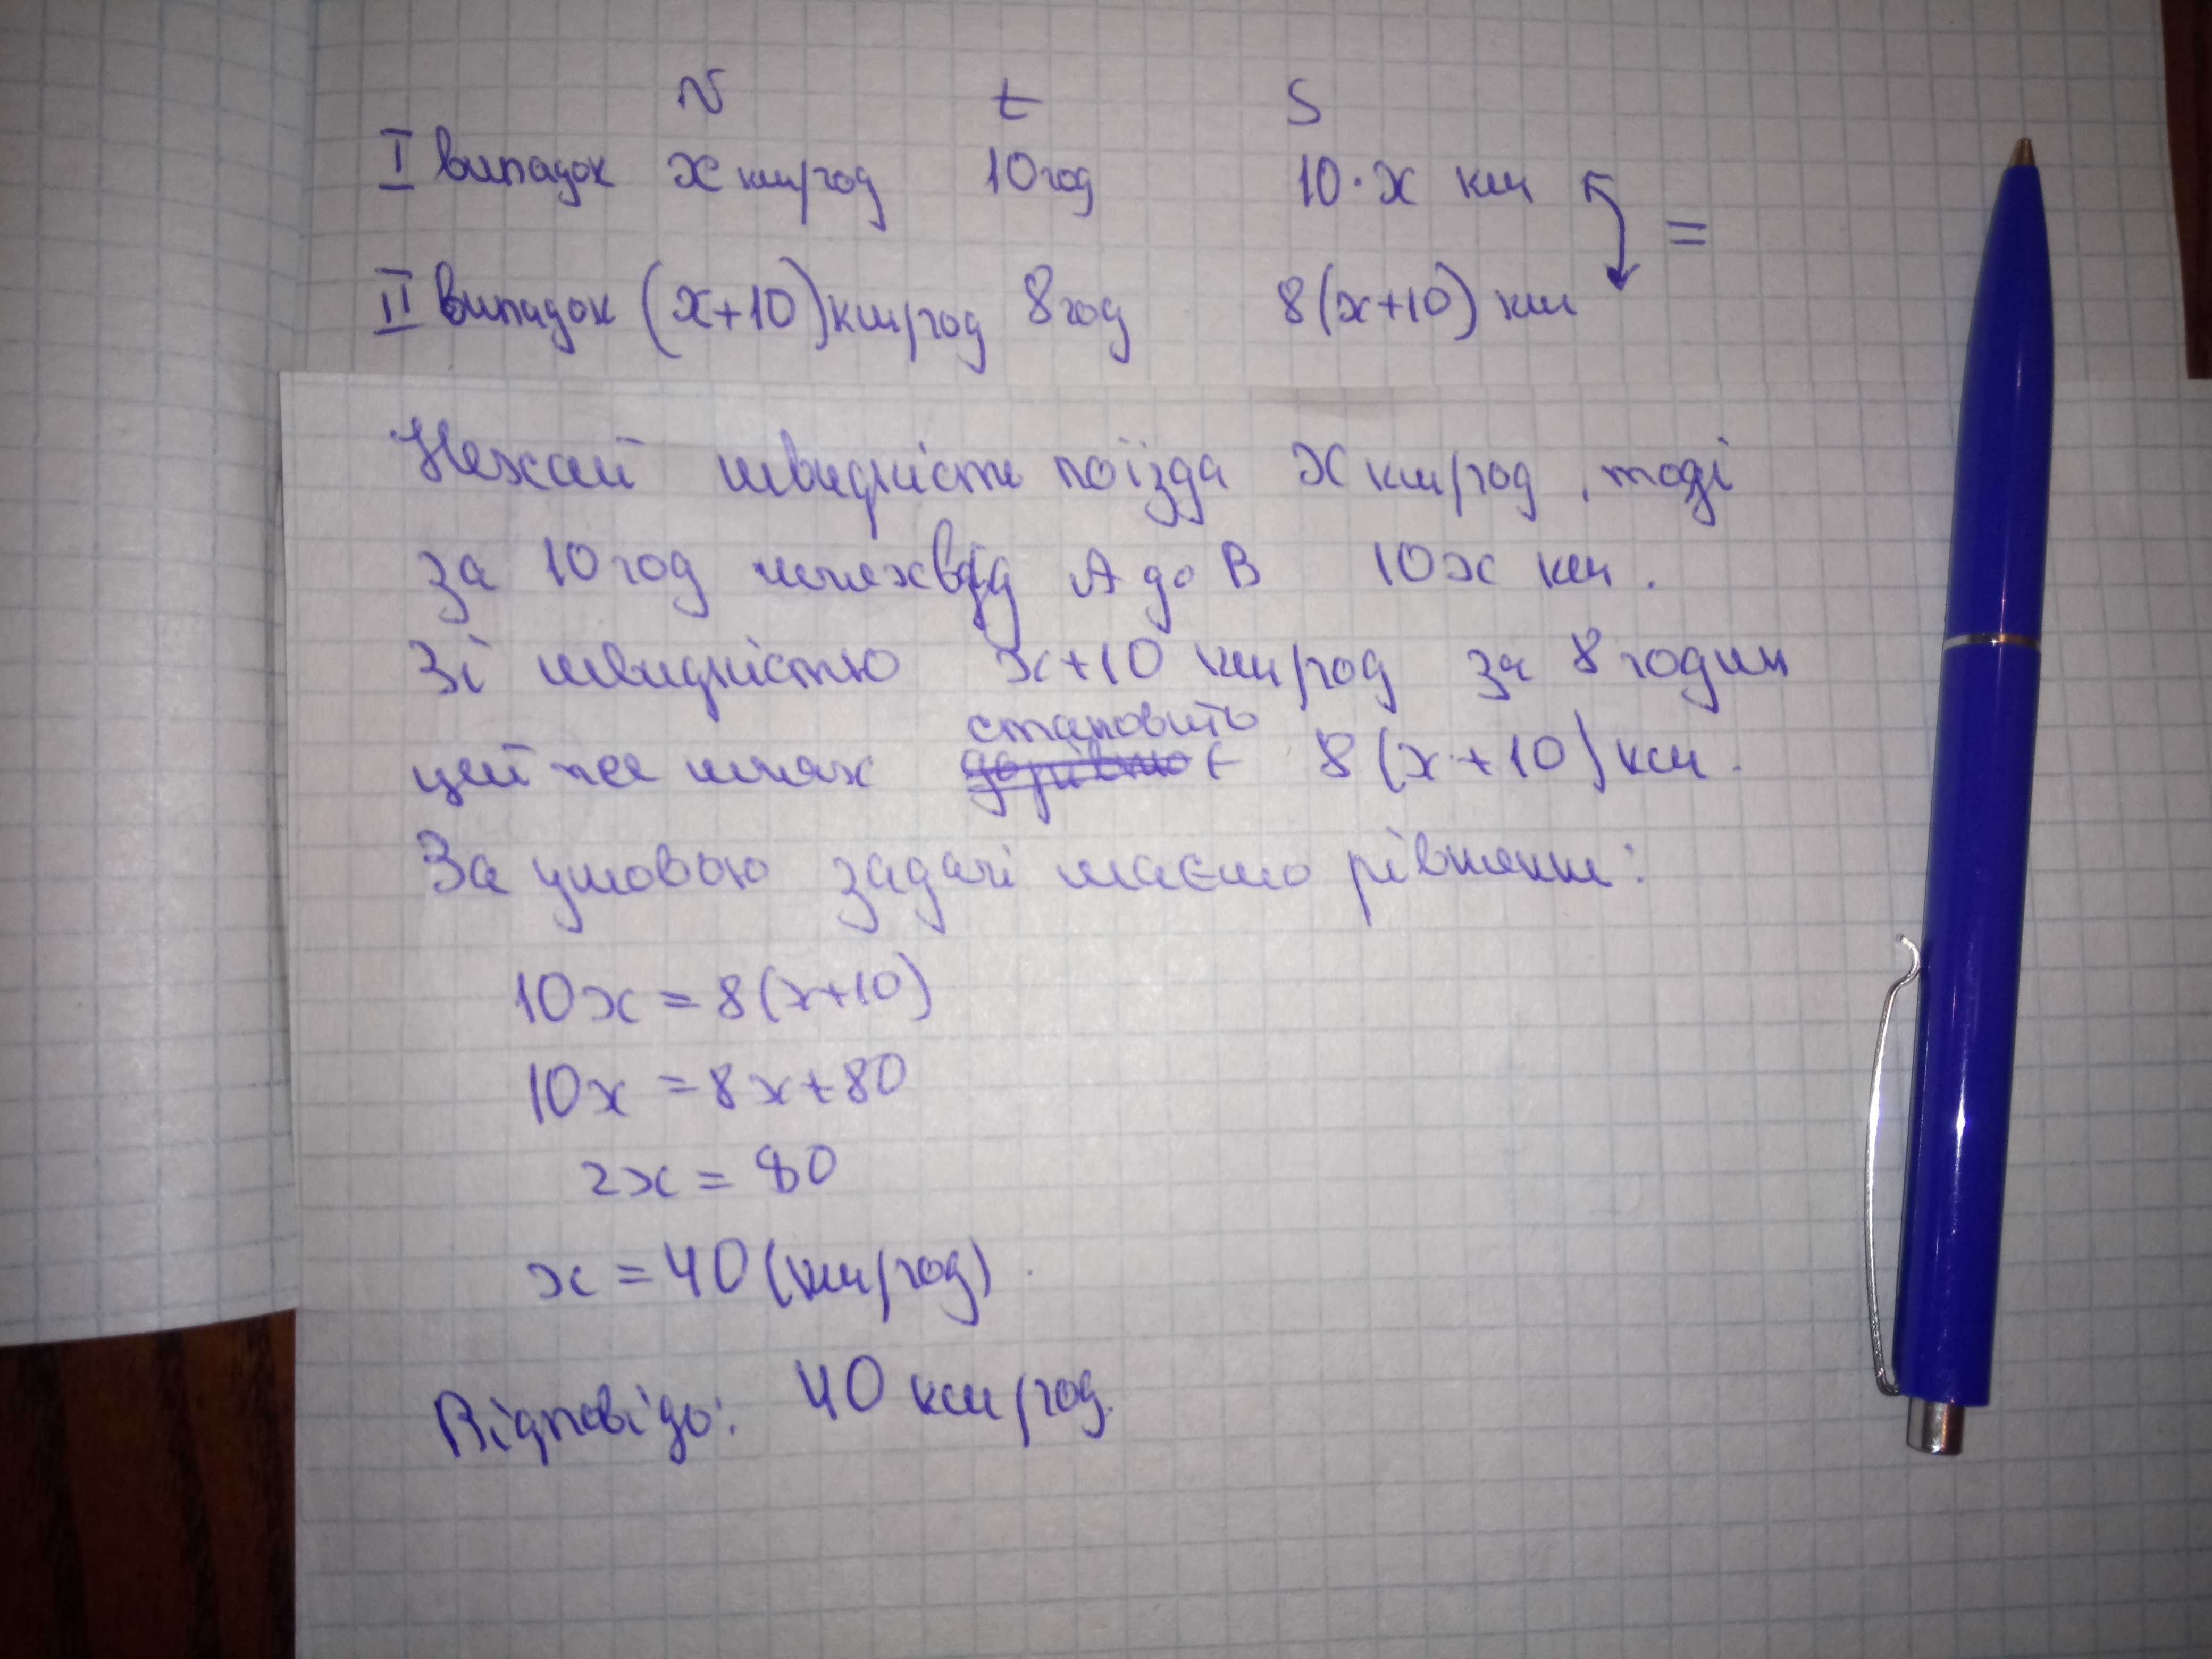 v t S
I випадок x км/год 10 год 10·x км
=
II випадок (x+10) км/год 8 год 8(x+10) км
Нехай швидкість поїзда x км/год, тоді
за 10 год шлях від А до В 10x км.
Зі швидкістю x+10 км/год за 8 годин
становить
цей же шлях дорівнює 8(x+10) км.
За умовою задачі маємо рівняння:
10x = 8(x+10)
10x = 8x+80
2x = 80
x = 40 (км/год).
Відповідь: 40 км/год.